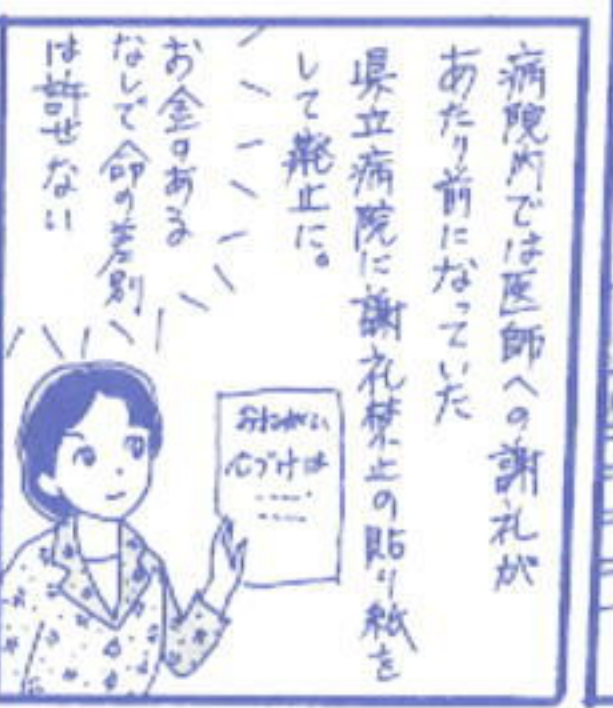 病院内では医師への謝礼が
あたり前になっていた
県立病院に謝礼禁止の貼り紙を
して廃止に。
お金のある
なしで命の差別
は許せない
おねがい
心づけは